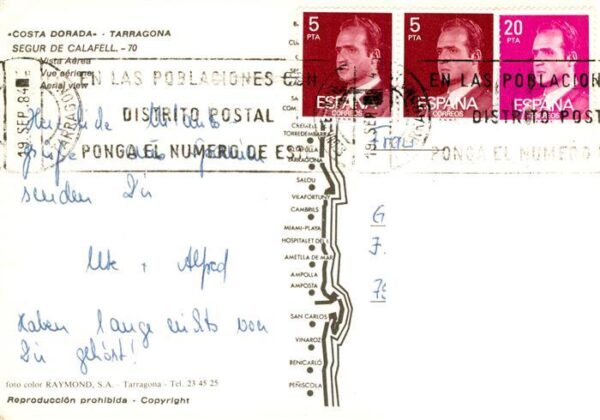 «COSTA DORADA» - TARRAGONA
SEGUR DE CALAFELL. - 70
Vista Aérea
Vue aérienne
Aerial view
19 SEP. 84
TARRAGONA
EN LAS POBLACIONES CON
DISTRITO POSTAL
PONGA EL NUMERO DE ES
5
PTA
ESPAÑA
CORREOS
5
PTA
ESPAÑA
CORREOS
20
PTA
ESPAÑA
CORREOS
EN LAS POBLACION
DISTRITO POSTAL
PONGA EL NUMERO
19 SEP
Herzliche Urlaubs
grüße aus Spanien
senden Dir
Ute + Alfred
Haben lange nichts von
Dir gehört!
TORREDEMBARRA
TARRAGONA
SALOU
VILAFORTUNY
CAMBRILS
MIAMI-PLAYA
HOSPITALET DEL I.
AMETLLA DE MAR
AMPOLLA
AMPOSTA
SAN CARLOS
VINAROZ
BENICARLÓ
PEÑISCOLA
G
7.
foto color RAYMOND, S.A. - Tarragona - Tel. 23 45 25
Reproducción prohibida - Copyright